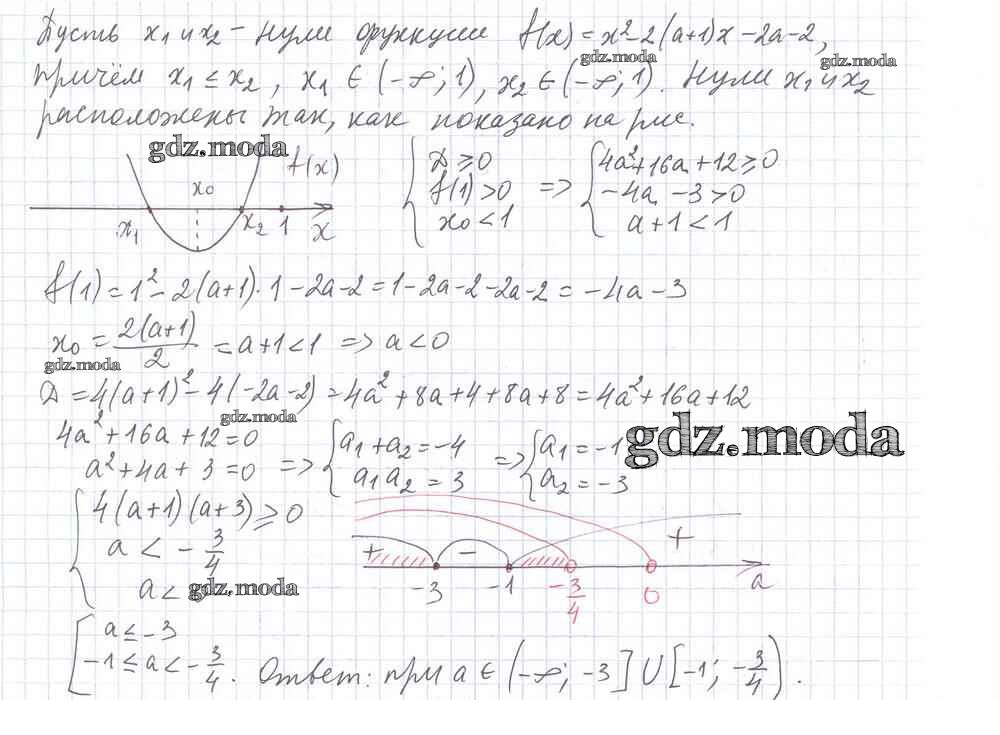 Пусть x₁ и x₂ – нули функции f(x) = x² – 2(a+1)x – 2a – 2,
gdz.moda gdz.moda
причём x₁ ≤ x₂, x₁ ∈ (–∞; 1), x₂ ∈ (–∞; 1). Нули x₁ и x₂
расположены так, как показано на рис.
gdz.moda
f(x)
x₀
x₁ x₂ 1 x
{ D ≥ 0 => { 4a² + 16a + 12 ≥ 0
f(1) > 0 –4a – 3 > 0
x₀ < 1 a + 1 < 1
f(1) = 1² – 2(a+1)·1 – 2a – 2 = 1 – 2a – 2 – 2a – 2 = –4a – 3
x₀ = 2(a+1)/2 = a + 1 < 1 => a < 0
gdz.moda
D = 4(a+1)² – 4(–2a–2) = 4a² + 8a + 4 + 8a + 8 = 4a² + 16a + 12
gdz.moda
gdz.moda
4a² + 16a + 12 = 0
a² + 4a + 3 = 0 => { a₁ + a₂ = –4
a₁a₂ = 3 => { a₁ = –1
a₂ = –3
{ 4(a+1)(a+3) ≥ 0
a < –3/4
a <
gdz.moda
+ – +
–3 –1 –3/4 0 a
[ a ≤ –3
–1 ≤ a < –3/4. Ответ: при a ∈ (–∞; –3] ∪ [–1; –3/4).